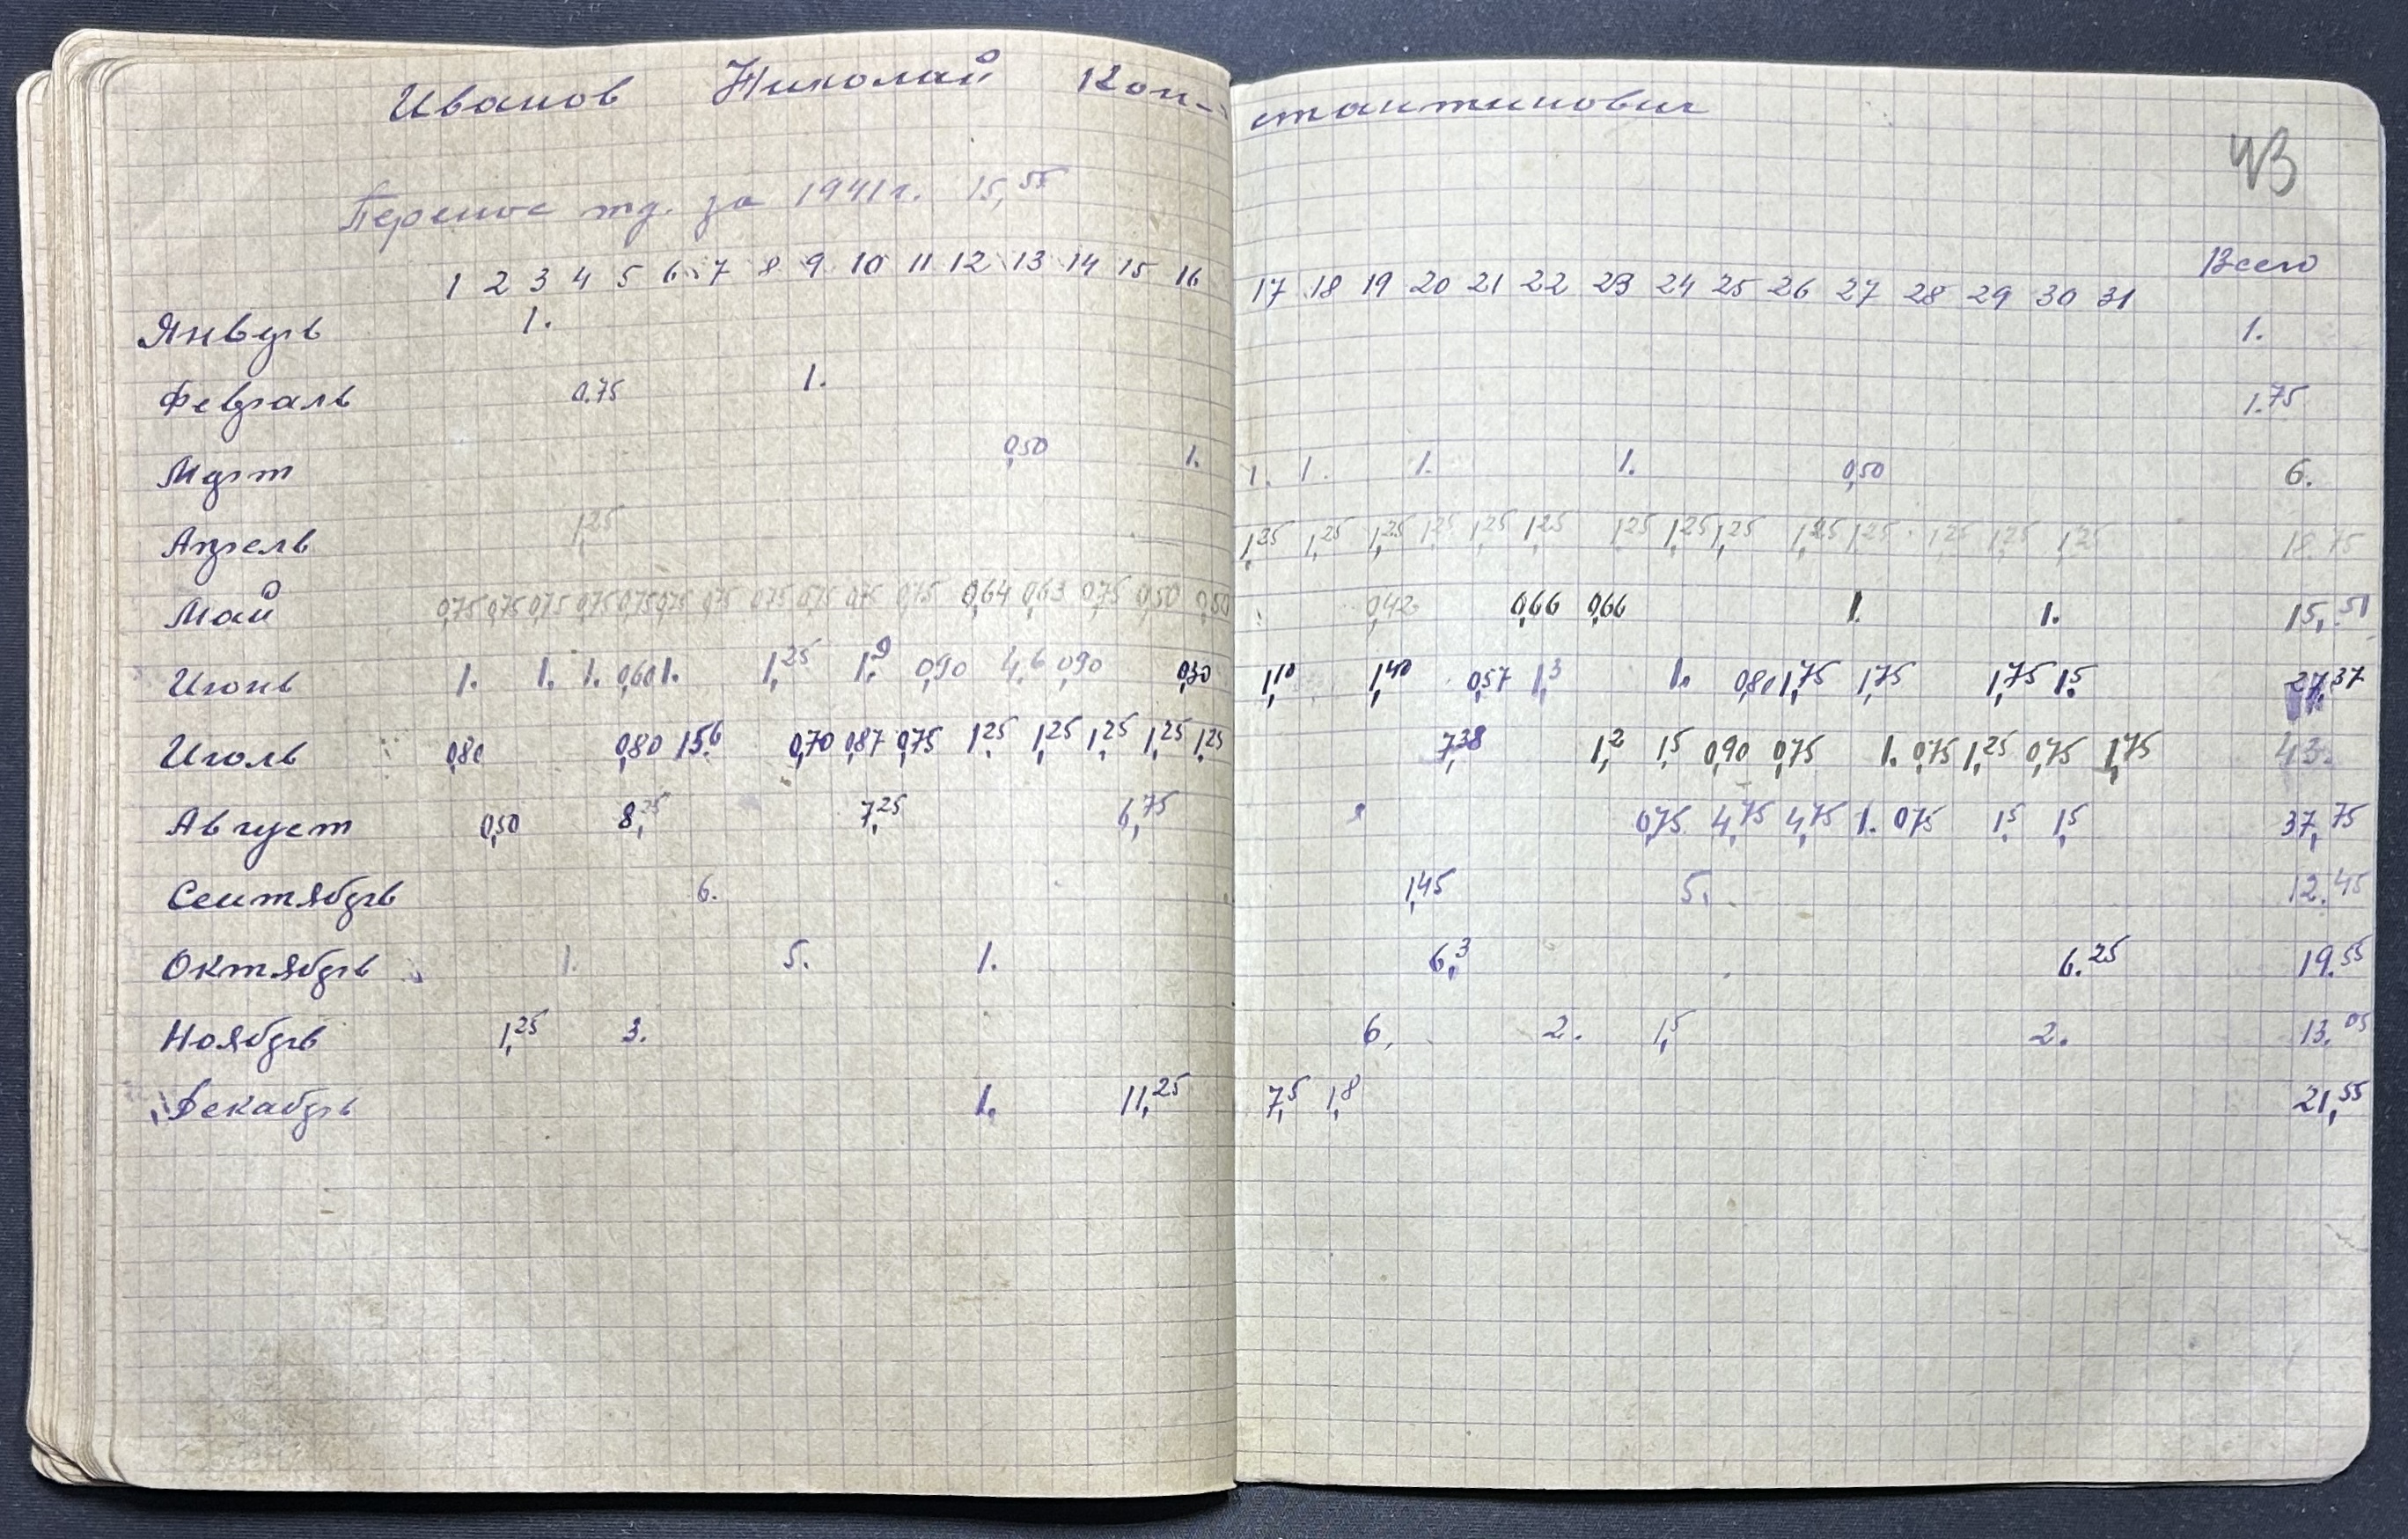 Иванов Николай Кон-стантинович
43
Перенос тд. за 1941г. 15,55
1 2 3 4 5 6 7 8 9 10 11 12 13 14 15 16 17 18 19 20 21 22 23 24 25 26 27 28 29 30 31 Всего
Январь 1. 1.
Февраль 0.75 1. 1.75
Март 0,50 1. 1. 1. 1. 1. 0,50 6.
Апрель 1,25 1,25 1,25 1,25 1,25 1,25 1,25 1,25 1,25 1,25 1,25 1,25 1,25 1,25 1,25 18.75
Май 0,75 0,75 0,75 0,75 0,75 0,75 0,75 0,75 0,75 0,75 0,75 0,64 0,63 0,75 0,50 0,50 0,42 0,66 0,66 1. 1. 15,51
Июнь 1. 1. 1. 0,60 1. 1,25 1,9 0,90 4,6 0,90 0,30 1,10 1,40 0,57 1,3 1. 0,80 1,75 1,75 1,75 1,5 27,37
Июль 0,80 0,80 15,6 0,70 0,87 0,75 1,25 1,25 1,25 1,25 1,25 7,38 1,2 1,5 0,90 0,75 1. 0,75 1,25 0,75 1,75 43
Август 0,50 8,25 7,25 6,75 0,75 4,75 4,75 1. 0,75 1,5 1,5 37,75
Сентябрь 6. 1,45 5. 12.45
Октябрь 1. 5. 1. 6,3 6.25 19.55
Ноябрь 1,25 3. 6. 2. 1,5 2. 13.05
Декабрь 1. 11,25 7,5 1,8 21,55